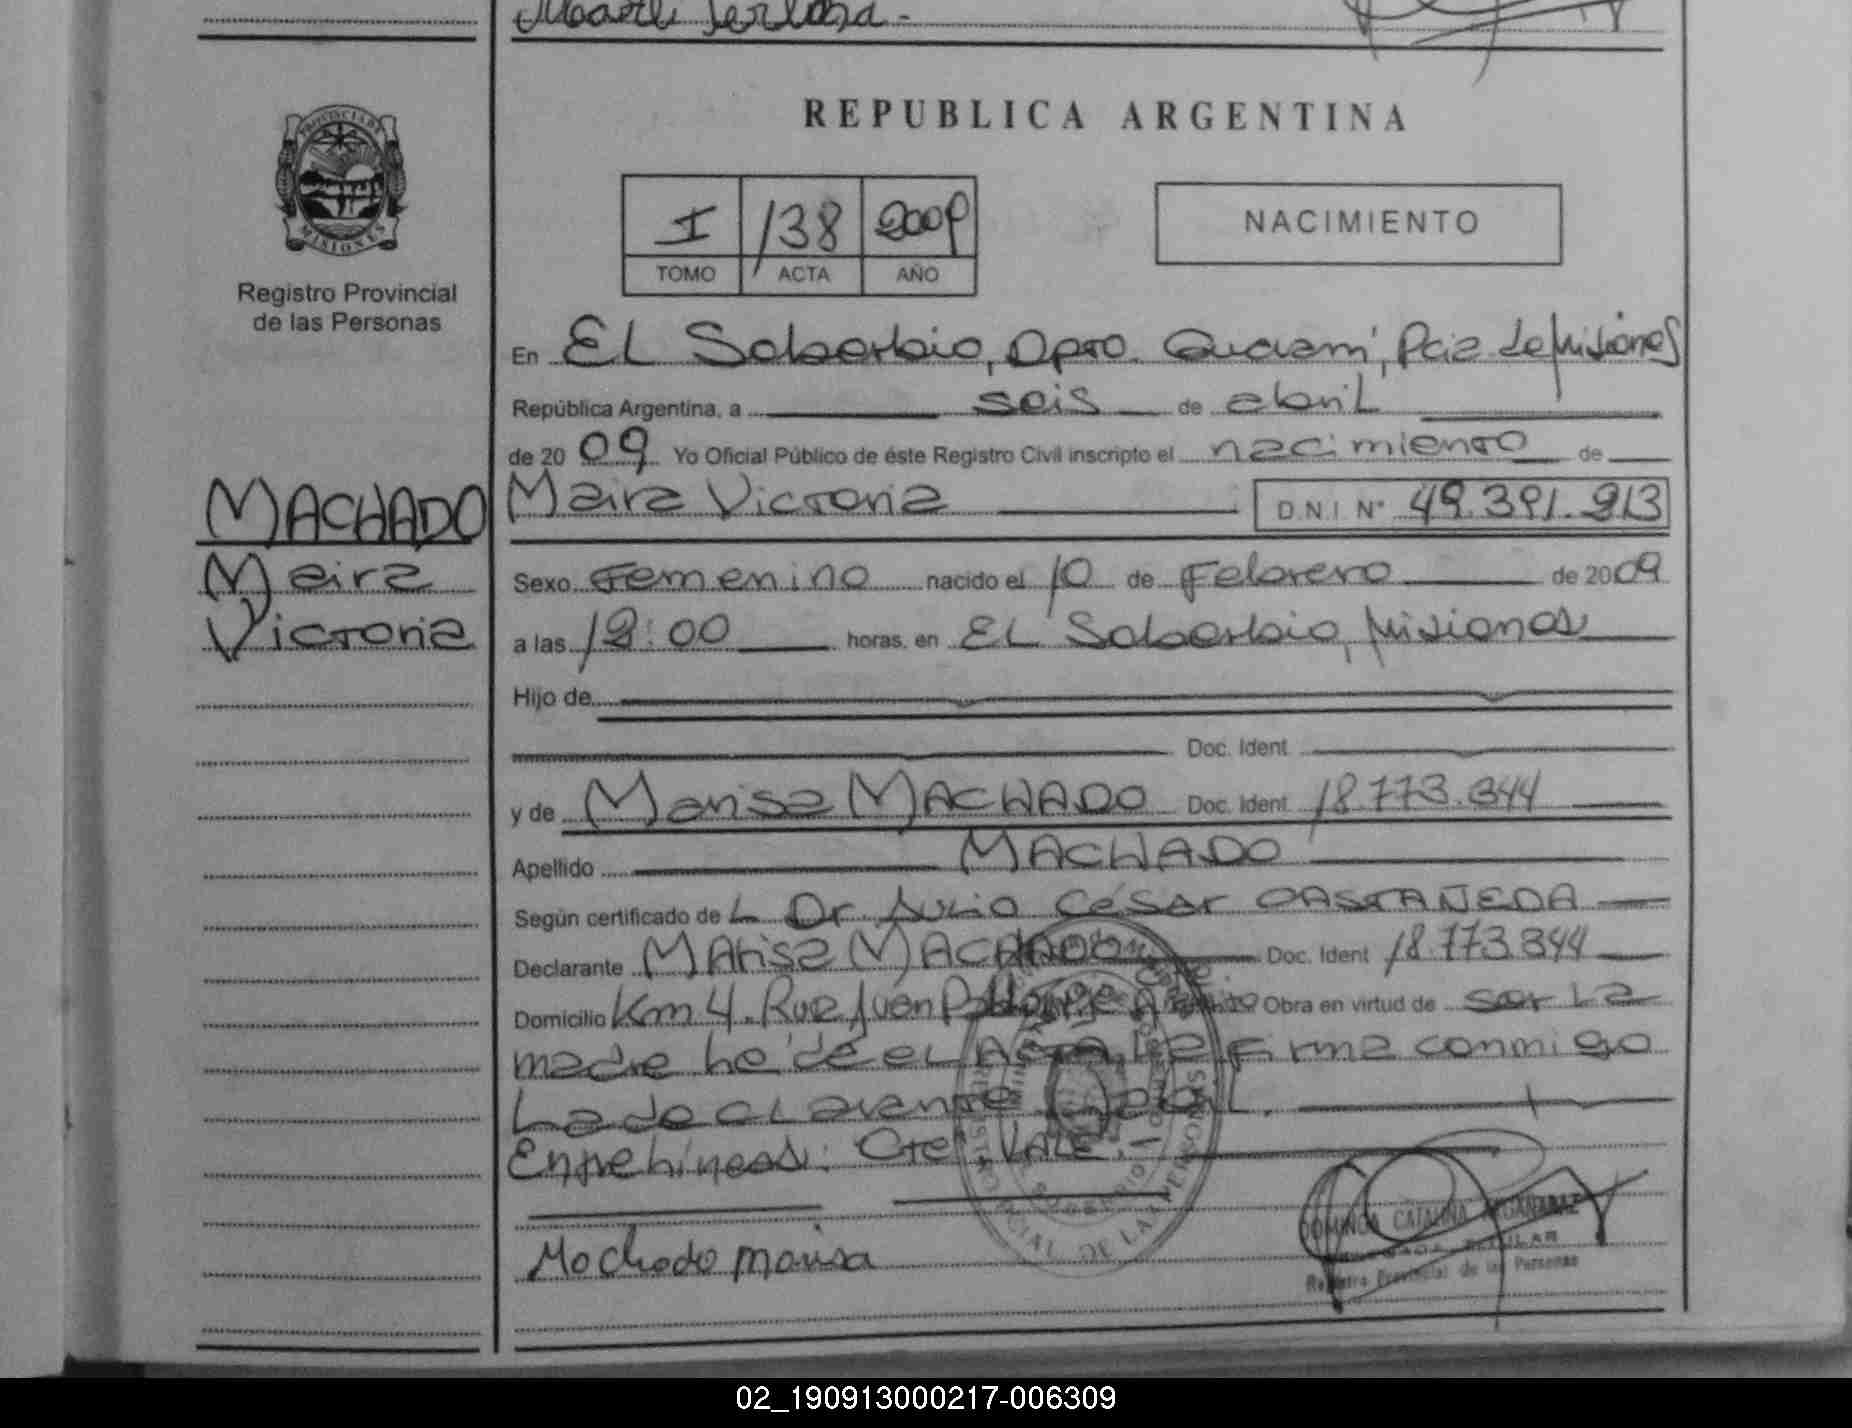 REPUBLICA ARGENTINA
PROVINCIA DE
MISIONES
Registro Provincial
de las Personas
I 138 2009
TOMO ACTA AÑO
NACIMIENTO
En El Soberbio, Dpto. Guaraní, Pcia de Misiones
República Argentina, a seis de abril
de 2009 Yo Oficial Público de éste Registro Civil inscripto el nacimiento de
MACHADO
Maira
Victoria
Maira Victoria D.N.I. N° 49.391.913
Sexo Femenino nacido el 10 de Febrero de 2009
a las 12:00 horas, en El Soberbio, Misiones
Hijo de
Doc. Ident.
y de Marisa MACHADO Doc. Ident. 18.773.344
Apellido MACHADO
Según certificado de L Dr. Julio César CASTAÑEDA
Declarante Marisa MACHADO Doc. Ident 18.773.344
Domicilio Km 4. Ruta Juan Obra en virtud de ser la
madre he de el Acta, la firma conmigo
La declarante
Entrelineas: Cte. VALE.-
Machado marisa
DOMINGA CATALINA
TITULAR
Registro Provincial de las Personas
REGISTRO PROVINCIAL DE LAS PERSONAS
SOBERBIO
02_190913000217-006309